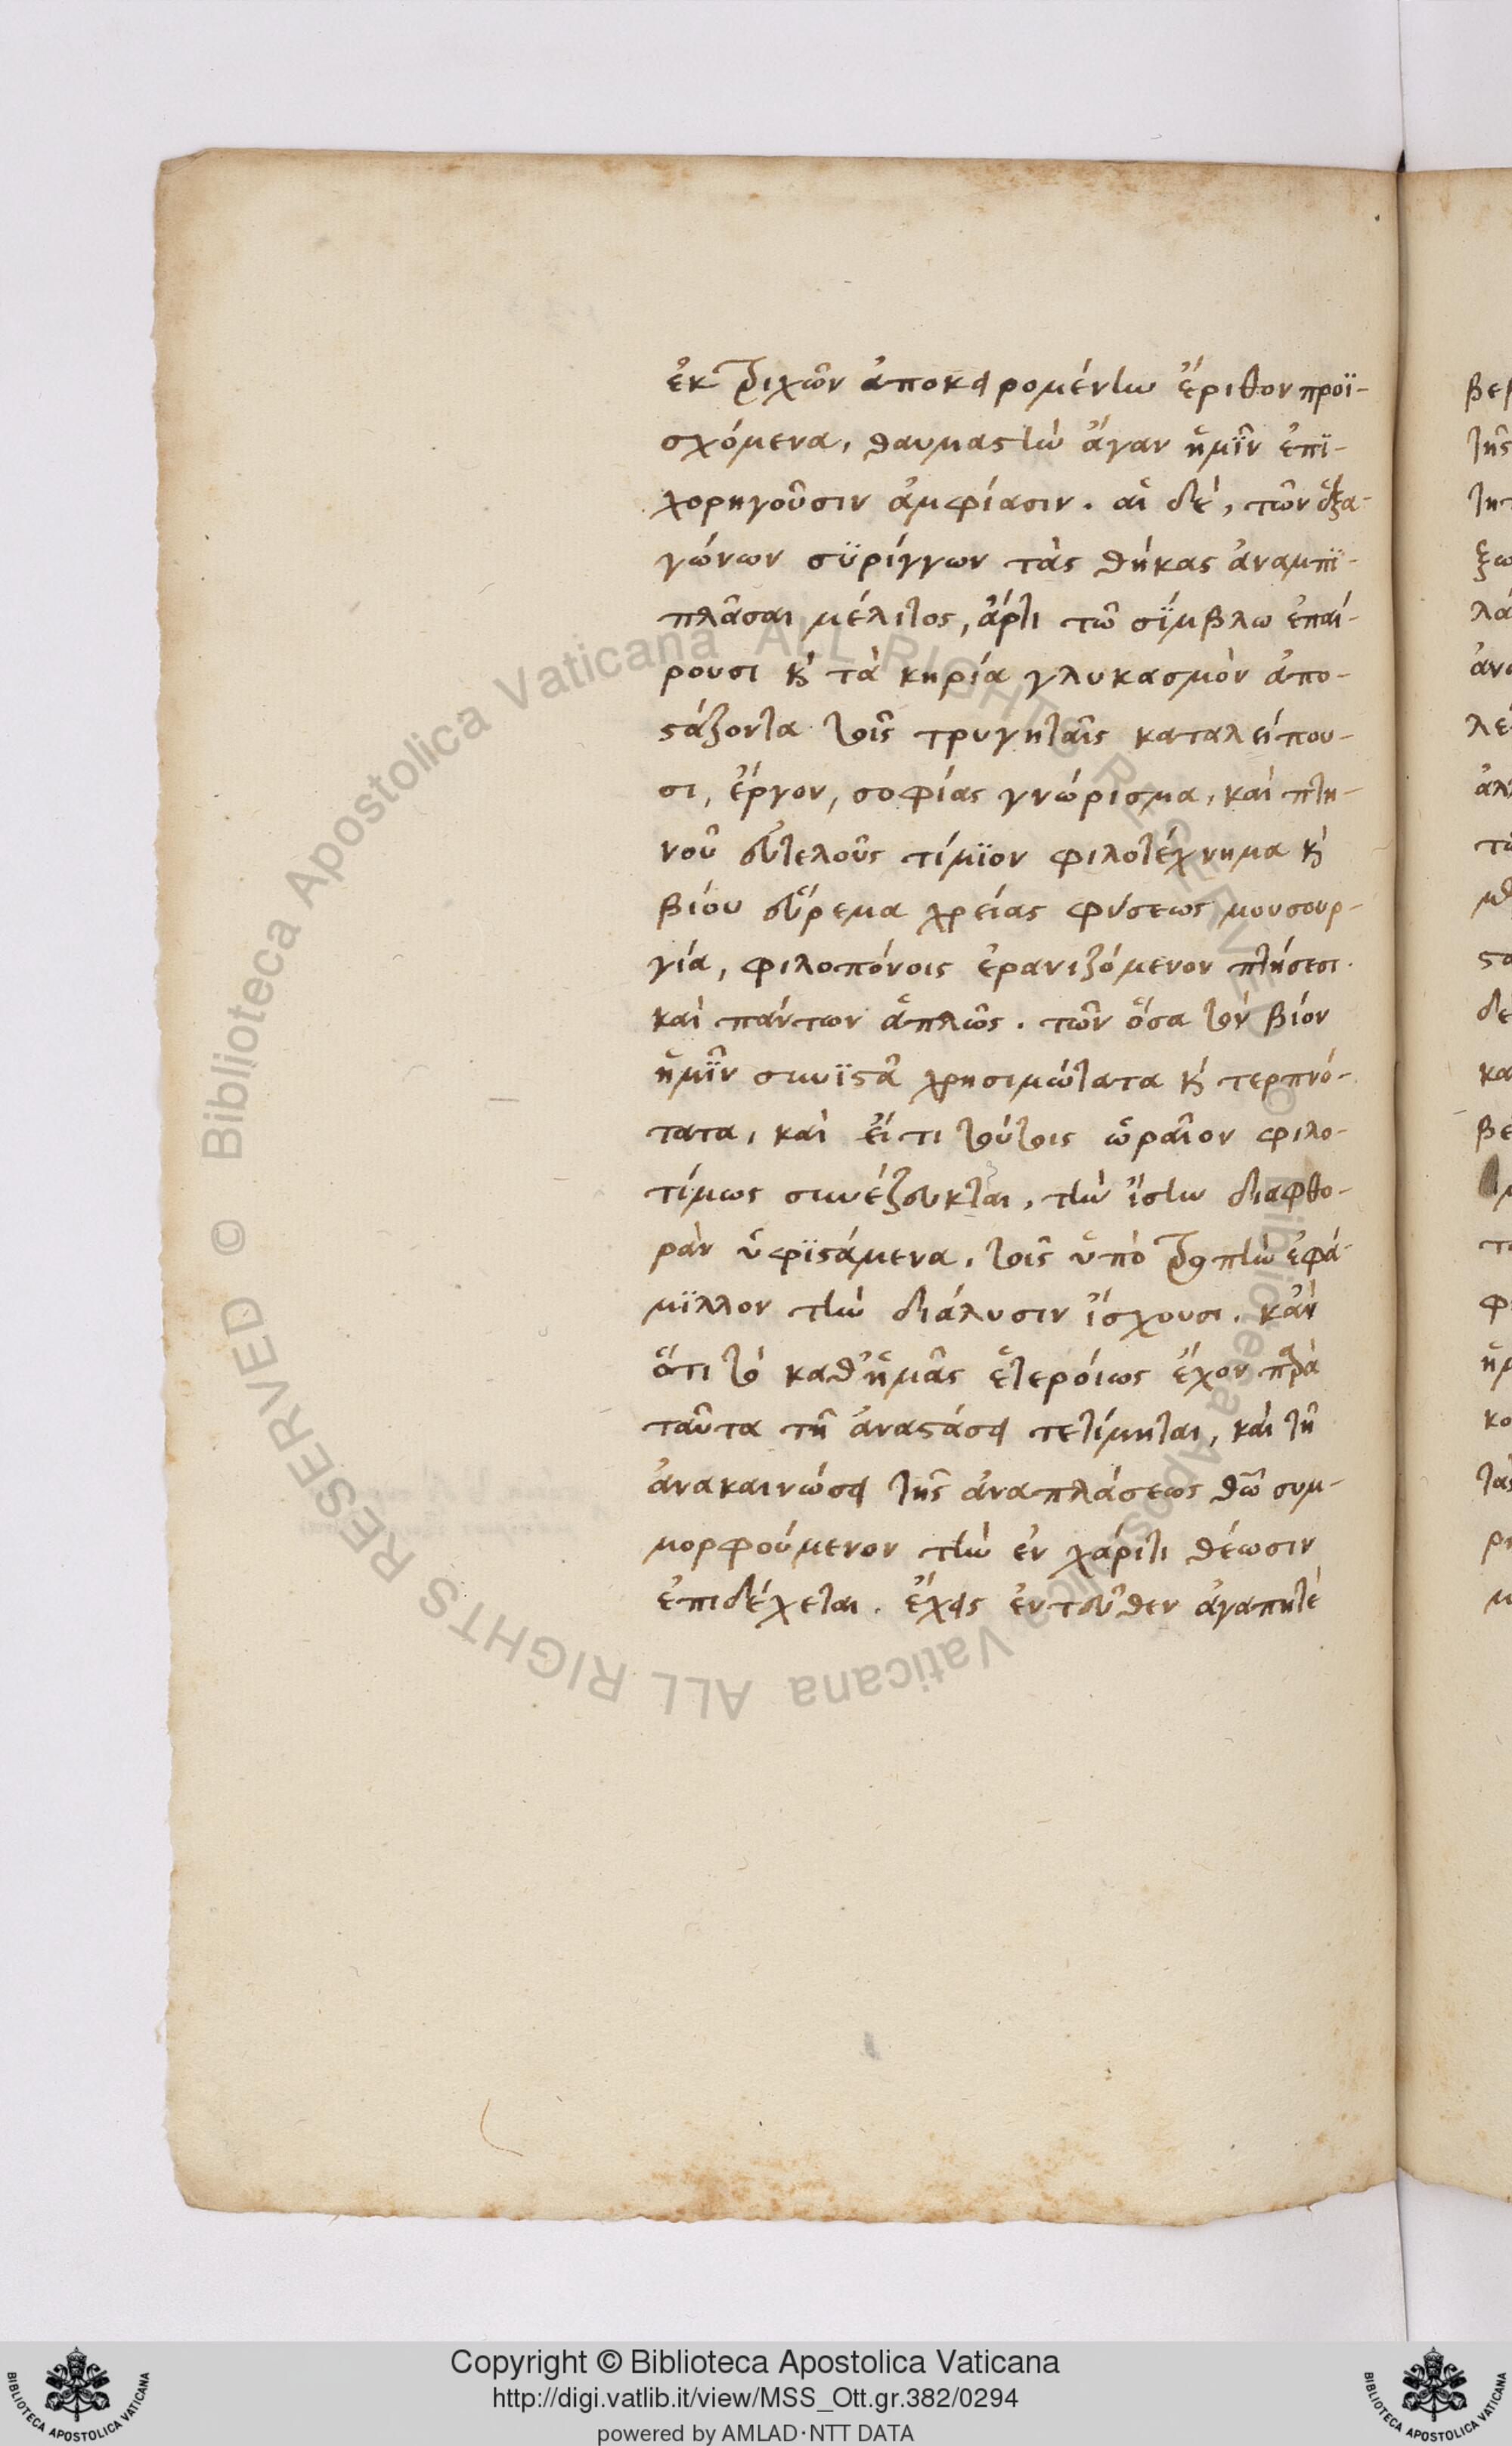 ἐκ τριχῶν ἀποκειρομένην ἔριθον προϊ-
σχόμενα, θαυμαστὴν ἄγαν ἡμῖν ἐπι-
χορηγοῦσιν ἀμφίασιν. αἱ δέ, τῶν ἑξα-
γώνων συρίγγων τὰς θήκας ἀναμπι-
πλᾶσαι μέλιτος, ἄρτι τῶ σίμβλω ἐπαί-
ρουσι κὶ τὰ κηρία γλυκασμὸν ἀπο-
στάζοντα τοῖς τρυγηταῖς καταλείπου-
σι, ἔργον, σοφίας γνώρισμα, καὶ πτη-
νοῦ εὐτελοῦς τίμιον φιλοτέχνημα κὶ
βίου εὕρεμα χρείας φύσεως μουσουρ-
γία, φιλοπόνοις ἐρανιζόμενον πτήσεσι.
καὶ πάντων ἁπλῶς. τῶν ὅσα τὸν βίον
ἡμῖν συνιστᾶ χρησιμώτατα κὶ τερπνό-
τατα, καὶ εἴ τι τούτοις ὡραῖον φιλο-
τίμως συνέζευκται, τὴν ἴσην διαφθο-
ρὰν ὑφιστάμενα, τοῖς ὑπὸ τροπὴν ἐφά-
μιλλον τὴν διάλυσιν ἴσχουσι. κἂν
ὅτι τὸ καθ' ἡμᾶς ἑτεροίως ἔχον παρὰ
ταῦτα τῆ ἀναστάσει τετίμηται, καὶ τῆ
ἀνακαινώσει τῆς ἀναπλάσεως θῶ συμ-
μορφούμενον τὴν ἐν χάριτι θέωσιν
ἐπιδέχεται. ἔχεις ἐντεῦθεν ἀγαπητέ
Copyright © Biblioteca Apostolica Vaticana
http://digi.vatlib.it/view/MSS_Ott.gr.382/0294
powered by AMLAD·NTT DATA
BIBLIOTECA APOSTOLICA VATICANA
BIBLIOTECA APOSTOLICA VATICANA
© Biblioteca Apostolica Vaticana ALL RIGHTS RESERVED
© Biblioteca Apostolica Vaticana ALL RIGHTS RESERVED